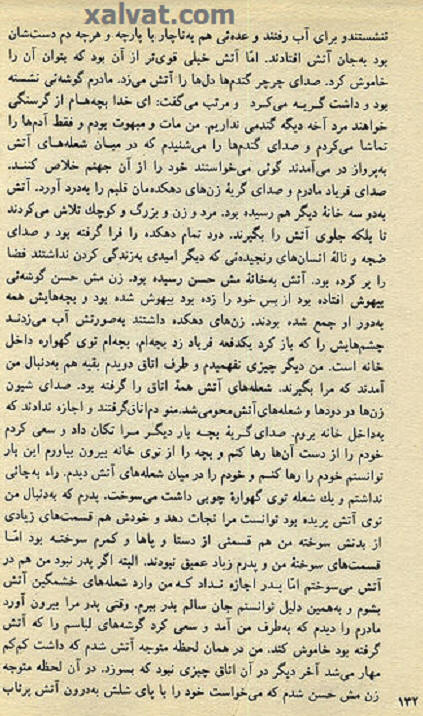 xalvat.com
ننشستندو برای آب رفتند و عده‌ئی هم به‌ناچار با پارچه و هرچه دم دست‌شان
بود به‌جان آتش افتادند. امّا آتش خیلی قوی‌تر از آن بود که بتوان آن را
خاموش کرد. صدای چرچر گندم‌ها دل‌ها را آتش می‌زد. مادرم گوشه‌ئی نشسته
بود و داشت گـریـه می‌کـرد و مرتب می‌گفت: ای خدا بچه‌هـام از گرسنگی
خواهند مرد آخه دیگه گندمی نداریم. من مات و مبهوت بودم و فقط آدم‌ها را
تماشا می‌کردم و صدای گندم‌ها را می‌شنیدم که در میـان شعله‌هـای آتش
به‌پرواز در می‌آمدند گوئی می‌خواستند خود را از آن جهنم خلاص کننـد.
صدای فریاد مادرم و صدای گریهٔ زن‌های دهکده‌مان قلبم را به‌درد آورد. آتش
به‌دو سه خانهٔ دیگر هم رسیده بود. مرد و زن و بزرگ و کوچك تلاش می‌کردند
تا بلکه جلوی آتش را بگیرند. درد تمام دهکده را فرا گرفته بود و صدای
ضجه و نالهٔ انسان‌های رنجیده‌ئی که دیگر امیدی به‌زندگی کردن نداشتند فضا
را پر کرده بود. آتش به‌خانهٔ مش حسن رسیده بود. زن مش حسن گوشه‌ئی
بیهوش افتاده بود از بس خود را زده بود بیهوش شده بود و بچه‌هایش همه
به‌دور او جمع شده بودند. زن‌های دهکده داشتند به‌صورتش آب می‌زدنـد
چشم‌هایش را که باز کرد یکدفعه فریاد زد بچه‌ام، بچه‌ام توی گهواره داخل
خانه است. من دیگر چیزی نفهمیدم و طرف اتاق دویدم بقیه هم به‌دنبال من
آمدند که مرا بگیرند. شعله‌های آتش همهٔ اتاق را گرفته بود. صدای شیون
زن‌ها در دودها و شعله‌های آتش محو می‌شد. منو دم اتاق گرفتند و اجازه ندادند که
به‌داخل خانه بروم. صدای گـریهٔ بچـه بار دیگـر مـرا تکان داد و سعی کردم
خودم را از دست آن‌ها رها کنم و بچه را از توی خانه بیرون بیاورم این بار
توانستم خودم را رها کنـم و خودم را در میان شعله‌های آتش دیدم. راه به‌جائی
نداشتم و یك شعله توی گهوارهٔ چوبی داشت می‌سوخت. پدرم که به‌دنبال من
توی آتش پریده بود توانست مرا نجات دهد و خودش هم قسمت‌های زیادی
از بدنش سوخته من هم قسمتی از دستا و پاها و کمرم سوختـه بود امّـا
قسمت‌های سوختهٔ من و پدرم زیاد عمیق نبودند. البته اگر پدر نبود من هم در
آتش می‌سوختم امّا پـدر اجازه نـداد کـه من وارد شعله‌های خشمگین آتش
بشوم و به‌همین دلیل توانستم جان سالم بدر ببرم. وقتی پدر مرا بیرون آورد
مادرم را دیدم که به‌طرف من آمد و سعی کرد گوشه‌های لباسم را که آتش
گرفته بود خاموش کند. من در همان لحظه متوجه آتش شدم که داشت کم‌کم
مهار می‌شد آخر دیگر در آن اتاق چیزی نبود که بسوزد. در آن لحظه متوجه
زن مش حسن شدم که می‌خواست خود را با پای شلش به‌درون آتش پرتاب
۱۳۲